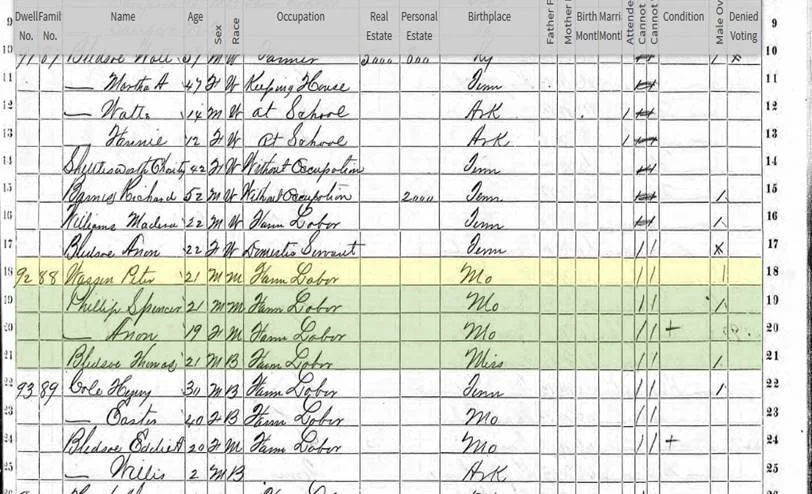 Dwell Famil Name Age Sex Race Occupation Real Estate Personal Estate Birthplace Father F Mother F Birth Month Marri Month Attende Cannot Cannot Condition Male Ov Denied Voting
No. No.
9 9
10 91 87 Bledsoe 57 M W Farmer 3000 800 Ky 1 x 10
11 — Martha A 47 F W Keeping House Tenn 11
12 — Walts 14 M W at School Ark 1 12
13 — Fannie 12 F W At School Ark 1 13
14 Charity 42 F W Without Occupation Tenn 14
15 Barnes Richard 52 M W Without Occupation 2,000 Tenn 1 15
16 Williams 22 M W Farm Labor Tenn 1 16
17 Bledsoe Anon 22 F W Domestic Servant Tenn 1 1 x 17
18 92 88 Wasson Peter 21 M M Farm Labor Mo 1 1 1 18
19 Phillip Spencer 21 M M Farm Labor Mo 1 1 1 19
20 — Anon 19 F M Farm Labor Mo 1 1 + 20
21 Bledsoe Thomas 21 M B Farm Labor Miss 1 1 1 21
22 93 89 Cole Henry 30 M B Farm Labor Tenn 1 1 1 22
23 — Easter 40 F B Farm Labor Mo 1 1 23
24 Bledsoe Eddie A 20 F M Farm Labor Mo 1 1 + 24
25 — Willis 2 M B Ark 25
26